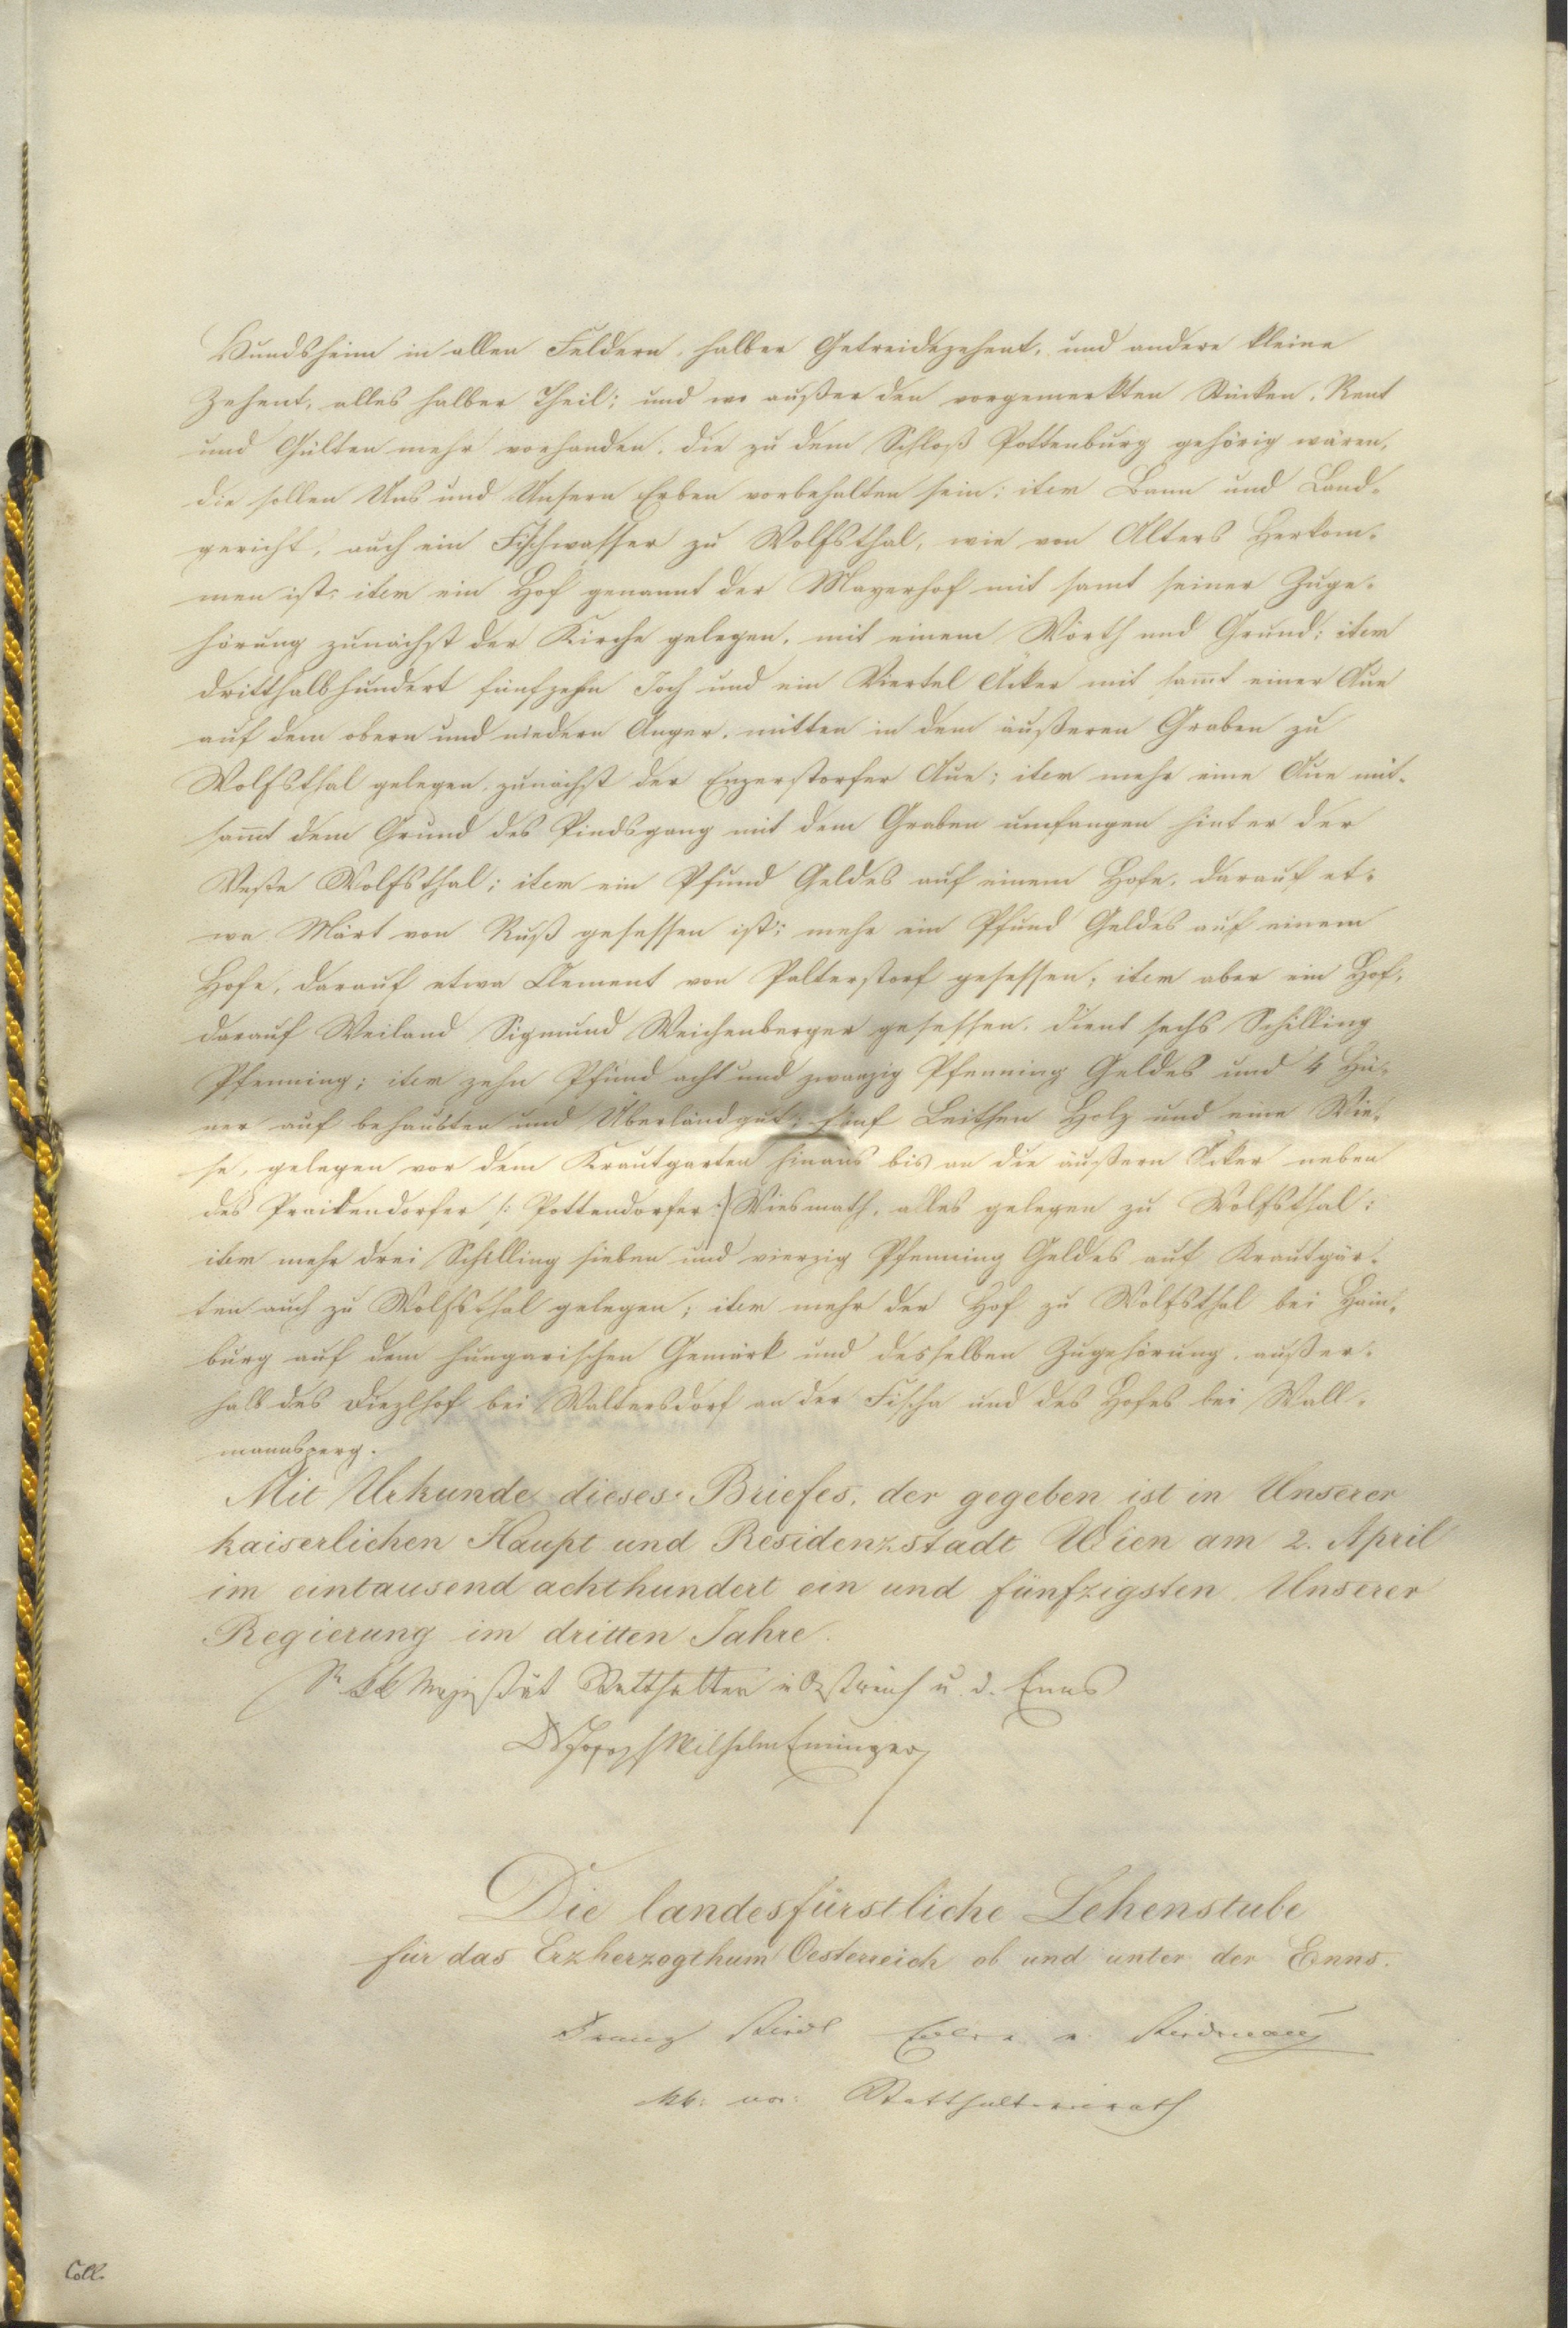 Hundsheim in allen Feldern, halber Getreidezehent, und andere kleine
Zehent, alles halber Theil; und wo außer den vorgemerkten Stücken, Rent
und Gülten mehr vorhanden, die zu dem Schloß Pottenburg gehörig wären,
die sollen Uns und Unsern Erben vorbehalten sein; item Bann und Land-
gericht, auch ein Fischwasser zu Wolfsthal, wie von Alters Herkom-
men ist; item ein Hof genannt der Mayerhof mit samt seiner Zuge-
hörung zunächst der Kirche gelegen, mit einem Wörth und Grund; item
dritthalbhundert fünfzehn Joch und ein Viertel Äcker mit sam̄t einer Aue
auf dem obern und niedern Anger, mitten in dem äußeren Graben zu
Wolfsthal gelegen, zunächst der Enzerstorfer Aue; item mehr eine Aue mit-
sam̄t dem Grund des Pindsgang mit dem Graben umfangen hinter der
Veste Wolfsthal; item ein Pfund Geldes auf einem Hofe, darauf et-
wa Märt von Ruß gesessen ist; mehr ein Pfund Geldes auf einem
Hofe, darauf etwa Clement von Palterstorf gesessen; item aber ein Hof,
darauf Weiland Sigmund Weichenberger gesessen, dient sechs Schilling
Pfenning; item zehn Pfund acht und zwanzig Pfenning Geldes und 4 Hü-
ner auf behausten und Überlandgut; fünf Leithen Holz und eine Wie-
se, gelegen vor dem Krautgarten hinaus bis an die äußern Äcker neben
des Praitendorfer /: Pottendorfer :/ Wiesmath, alles gelegen zu Wolfsthal;
item mehr drei Schilling sieben und vierzig Pfenning Geldes auf Krautgär-
ten auch zu Wolfsthal gelegen; item mehr der Hof zu Wolfsthal bei Hain-
burg auf dem hungarischen Gemärk und desselben Zugehörung, außer-
halb des Diezlhof bei Waltersdorf an der Fischa und des Hofes bei Wall-
mannsperg.
Mit Urkunde dieses Briefes, der gegeben ist in Unserer
kaiserlichen Haupt und Residenzstadt Wien am 2. April
im eintausend achthundert ein und fünfzigsten, Unserer
Regierung im dritten Jahre.
Sr kk Majestät Statthalter in Östreich u. d. Enns
Dr Joseph Wilhelm Eminger
Die landesfürstliche Lehenstube
für das Erzherzogthum Oesterreich ob und unter der Enns.
Franz
kk: Statthaltereirath
Coll.